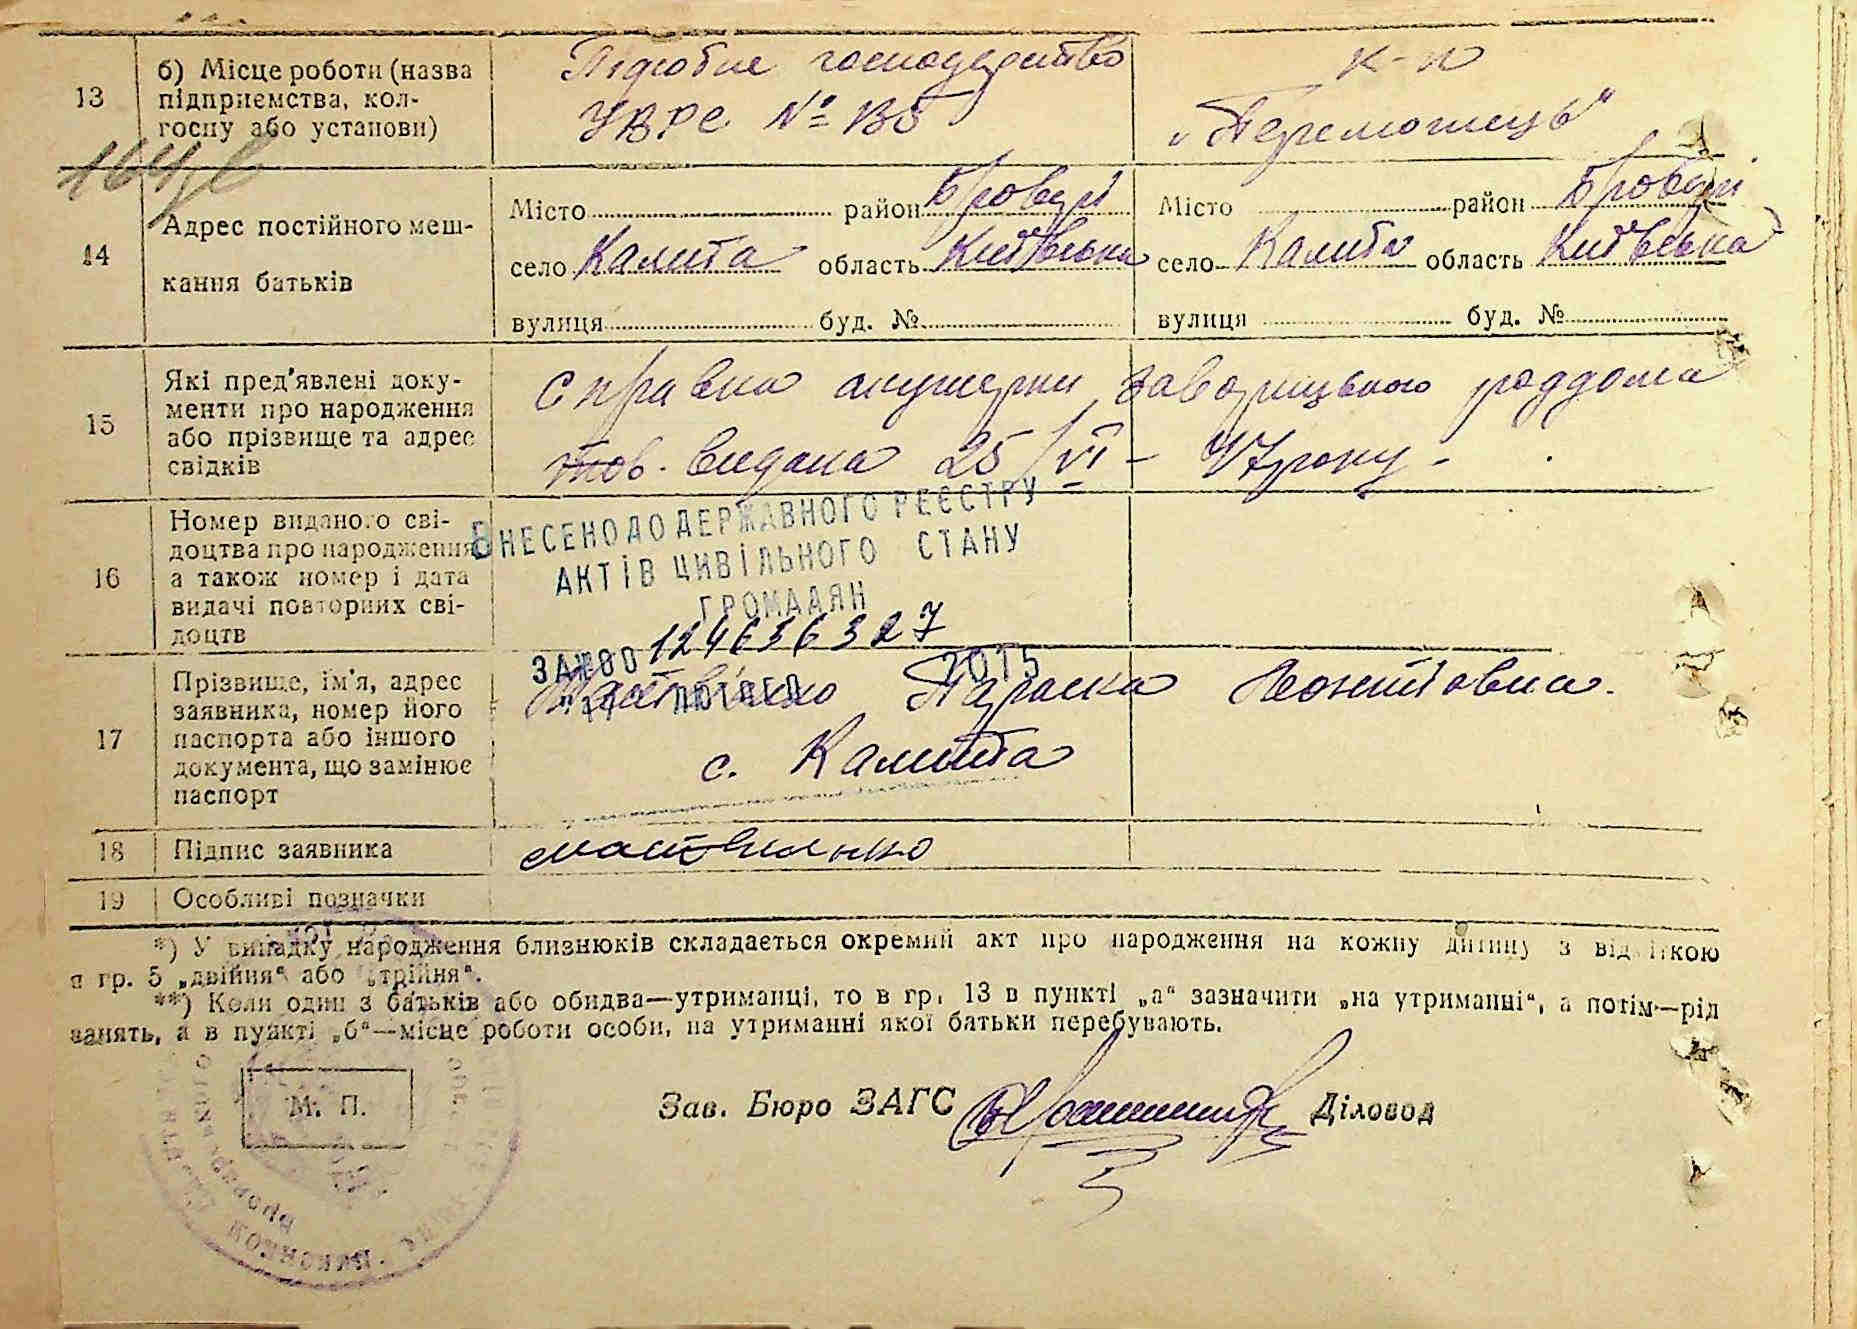 13
б) Місце роботи (назва
підприємства, кол-
госпу або установи)
Підсобне господарство
УВРС № 135
к-п
„Переможець"
14
Адрес постійного меш-
кання батьків
Місто район Броварі
село Калита область Київська
вулиця буд. №
Місто район Броварі
село Калита область Київська
вулиця буд. №
15
Які пред'явлені доку-
менти про народження
або прізвище та адрес
свідків
Справка акушерки Заворицького роддома
тов. видана 25/VI - 47 року -
16
Номер виданого сві-
доцтва про народження
а також номер і дата
видачі повторних сві-
доцтв
ВНЕСЕНО ДО ДЕРЖАВНОГО РЕЄСТРУ
АКТІВ ЦИВІЛЬНОГО СТАНУ
ГРОМАДЯН
ЗА № 00124636327
2015
17
Прізвище, ім'я, адрес
заявника, номер його
паспорта або іншого
документа, що замінює
паспорт
Параска Леонтіовна.
с. Калита
18
Підпис заявника
19
Особливі позначки
*) У випадку народження близнюків складається окремий акт про народження на кожну дитину з відміткою
в гр. 5 „двійня" або „трійня".
**) Коли один з батьків або обидва—утриманці, то в гр. 13 в пункті „а" зазначити „на утриманні", а потім—рід
занять, а в пункті „б"—місце роботи особи, на утриманні якої батьки перебувають.
М. П.
Зав. Бюро ЗАГС
Діловод